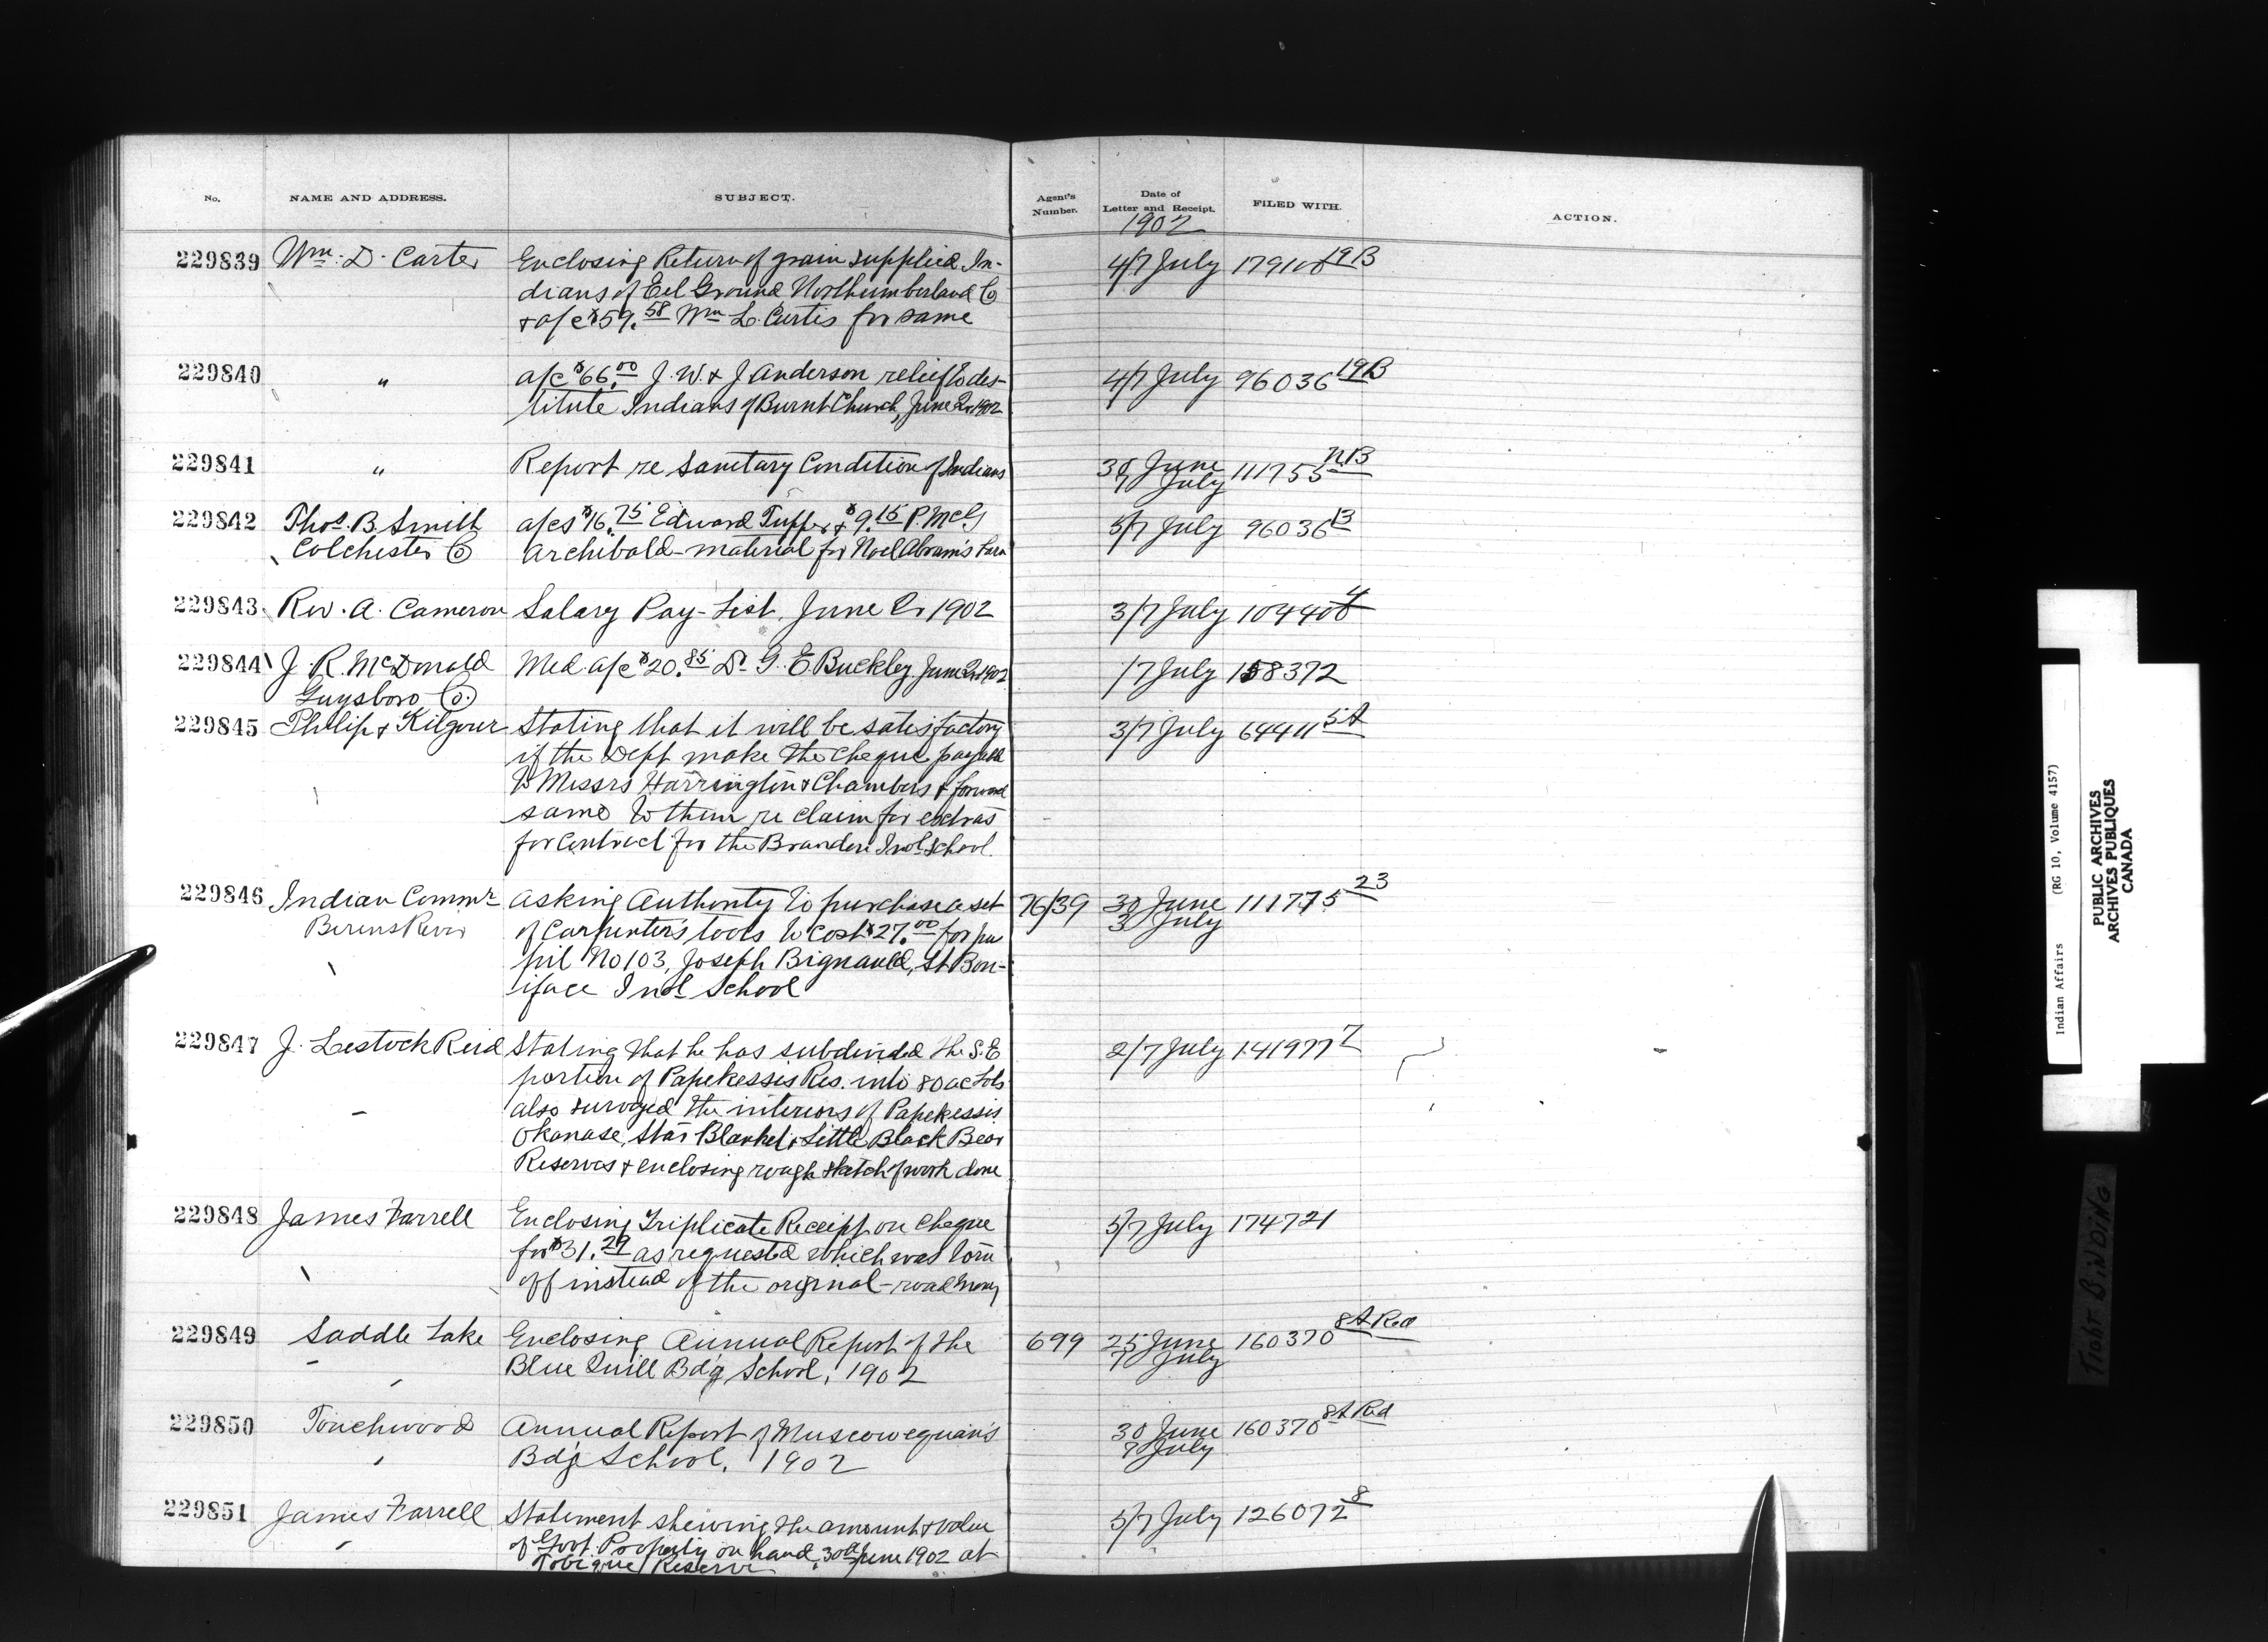 No. NAME AND ADDRESS. SUBJECT. Agent's Number. Date of Letter and Receipt. FILED WITH. ACTION.
1902
229839 Wm. D. Carter Enclosing Return of grain supplied In- 4/7 July 179108 19B
dians of Eel Ground Northumberland Co
& a/c $59.58 Wm L. Curtis for same
229840 " a/c $66.00 J. W. & J Anderson relief to des- 4/7 July 96036 19B
titute Indians of Burnt Church, June Qr 1902
229841 " Report re Sanitary Condition of Indians 30 June 111755 NB
7 July
229842 Thos. B. Smith a/cs $16.75 Edward Tupper & $9.15 P. McG 5/7 July 96036 13
Colchester Co Archibald - material for Noel Abram's
229843 Rev. A. Cameron Salary Pay-List, June Qr 1902 3/7 July 104408 4
229844 J. R. McDonald Med. a/c $20.85 Dr G. E. Buckley June Qr 1902 /7 July 158372
Guysboro Co.
229845 Philip & Kilgour Stating that it will be satisfactory 3/7 July 64411 5A
if the Dept make the cheque payable
to Messrs Harrington & Chambers & forward
same to them re claim for extras
for contract for the Brandon Indl School.
229846 Indian Commr Asking Authority to purchase a set 76/39 30 June 111775 23
Berens River of Carpenter's tools to cost $27.00 for pu 3 July
pil No 103, Joseph Bignauld, St Bon-
iface Indl School
229847 J. Lestock Reid Stating that he has subdivided the S.E 2/7 July 141977 7
portion of Papekessis Res. into 80 ac Lots
also surveyed the interiors of Papekessis
Okanase, Star Blanket & Little Black Bear
Reserves & enclosing rough sketch of work done
229848 James Farrell Enclosing Triplicate Receipt on cheque 5/7 July 174721
for $31.29 as requested which was torn
off instead of the original - road money
229849 Saddle Lake Enclosing Annual Report of the 699 25 June 160370 8A Red
Blue Quill Bdg School, 1902 7 July
229850 Touchwood Annual Report of Muscowequan's 30 June 160370 8A Red
Bdg School, 1902 7 July
229851 James Farrell Statement shewing the amount & value 5/7 July 126072 8
of Govt. Property on hand 30th June 1902 at
Tobique Reserve
Indian Affairs (RG 10, Volume 4157)
PUBLIC ARCHIVES
ARCHIVES PUBLIQUES
CANADA
TIGHT BINDING